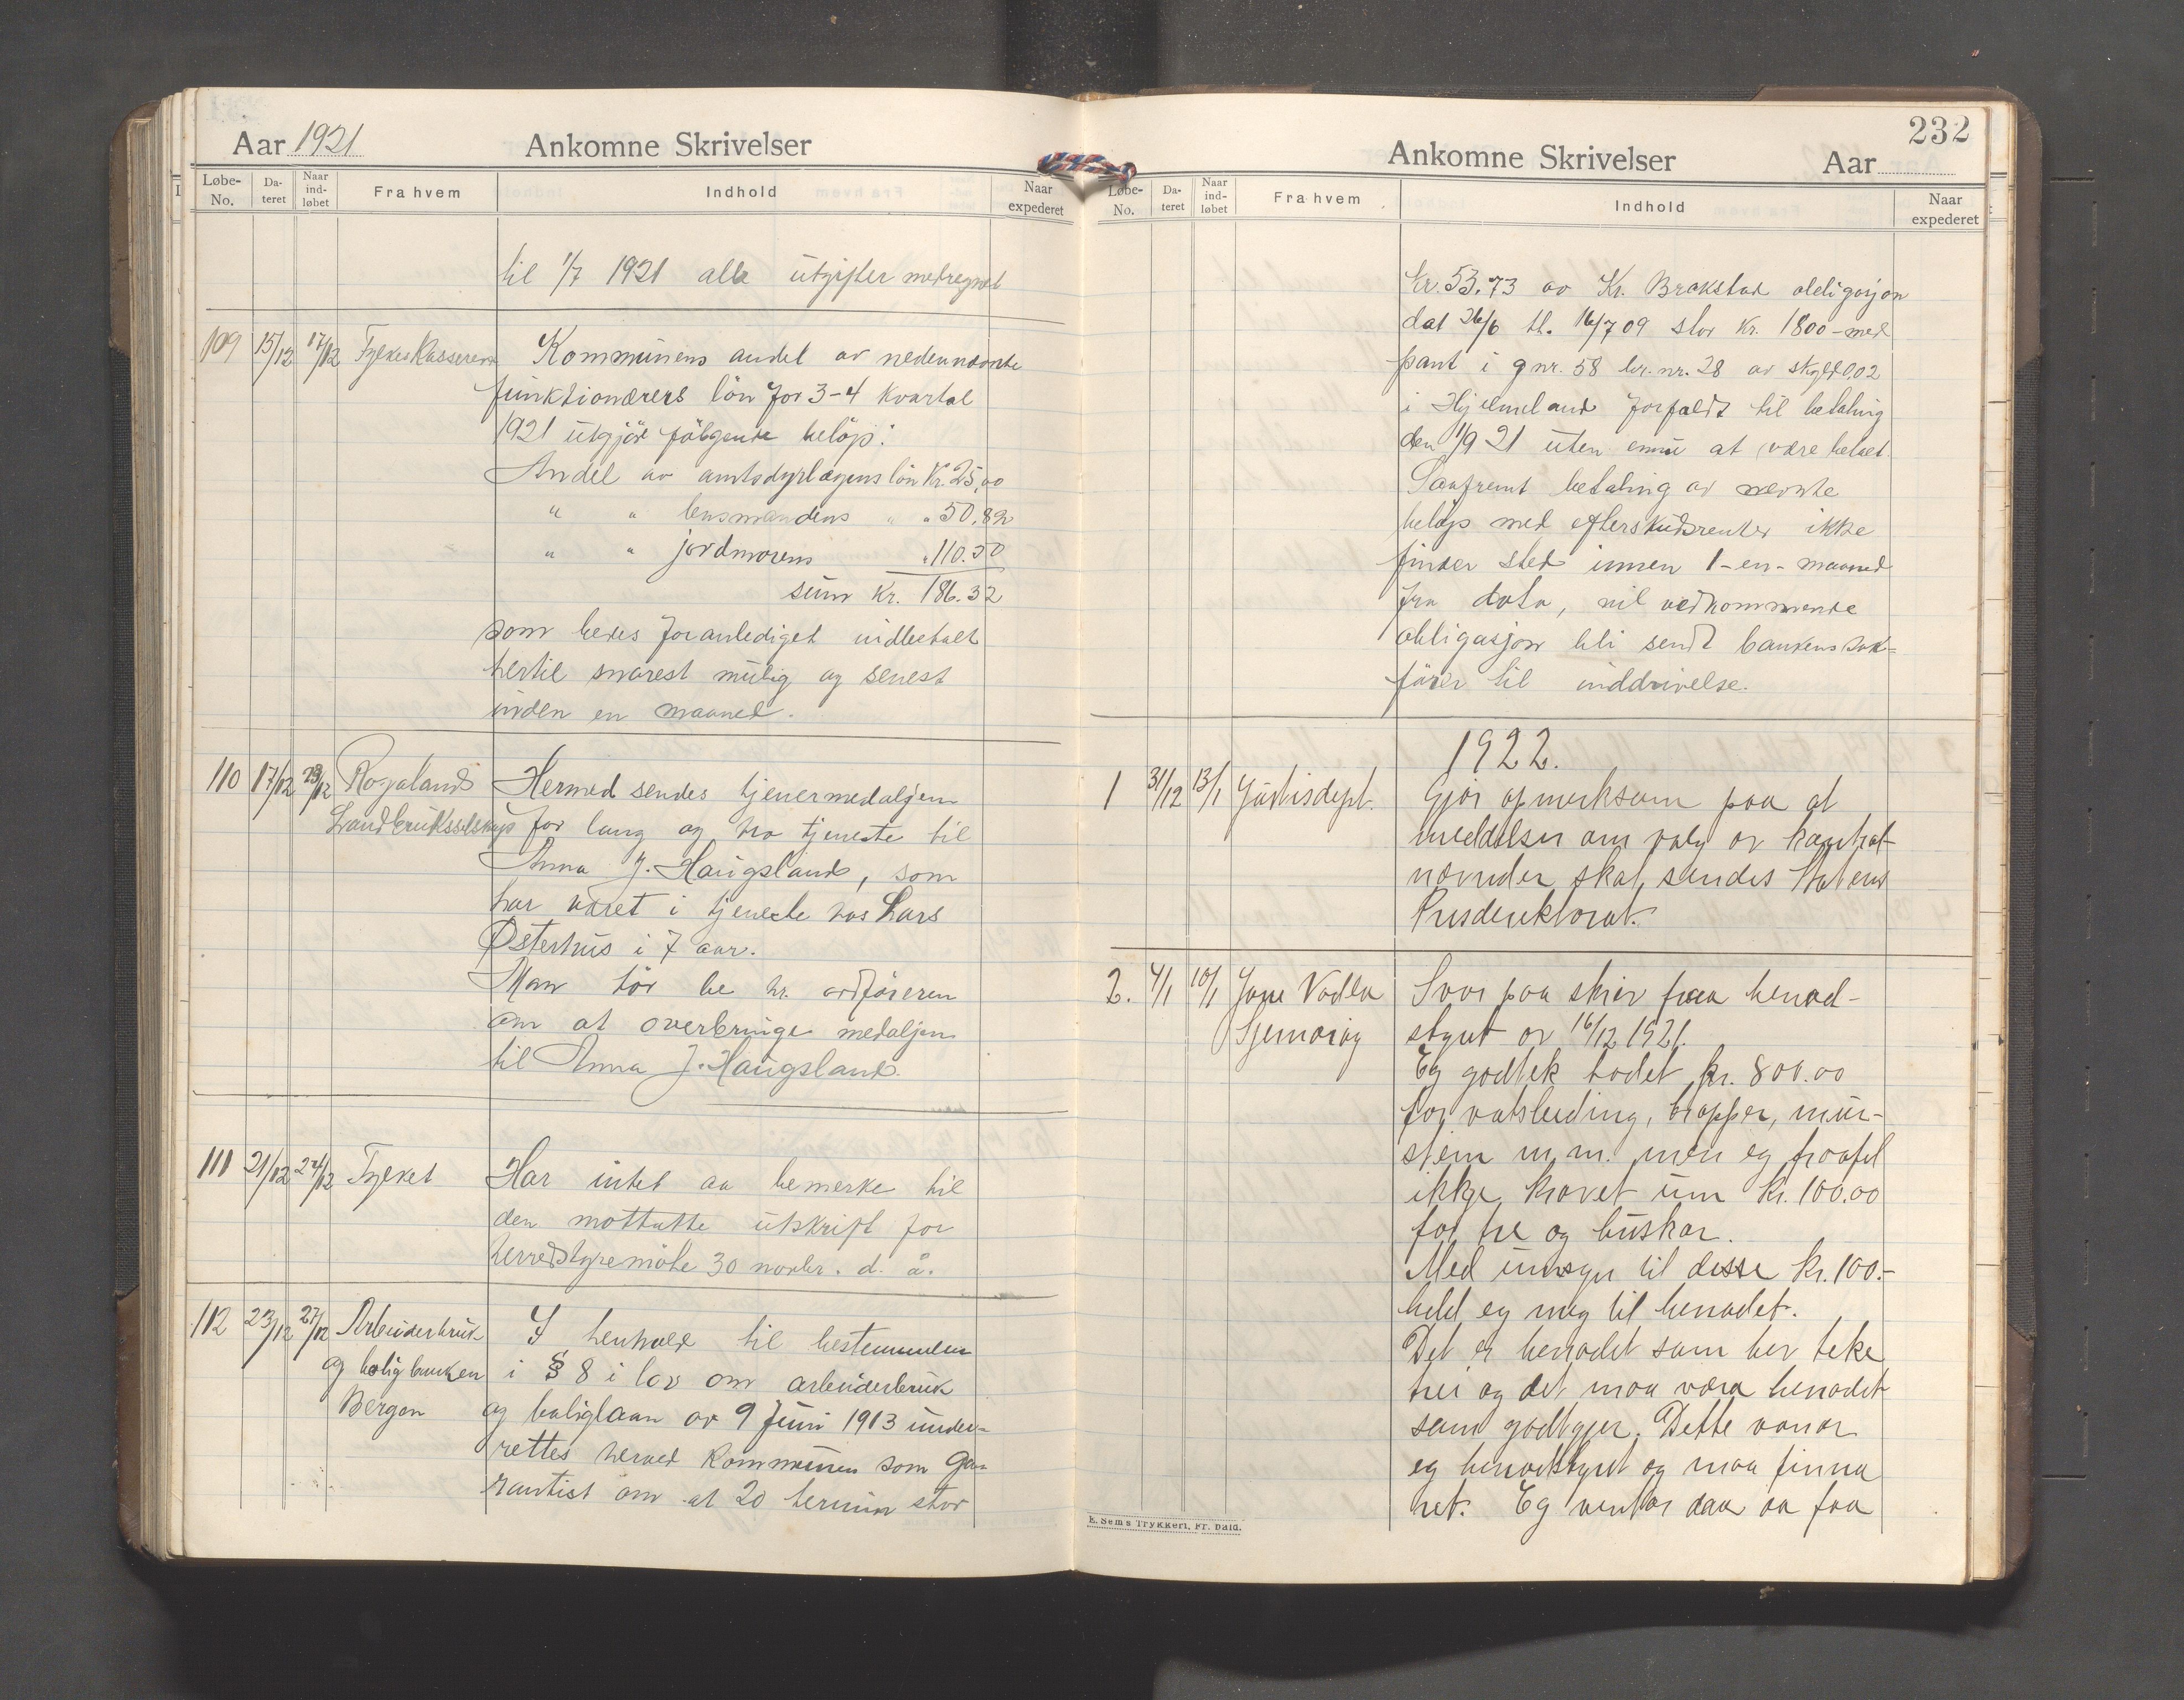 Aar 1921 Ankomne Skrivelser
Løbe-No. Da-teret Naar ind-løbet Fra hvem Indhold Naar expederet
til 1/7 1921 alle utgifter medregnet
109 15/12 17/12 Fylkeskassereren Kommunens andel av nedennævnte
funktionærers lön for 3-4 kvartal
1921 utgjör fölgende belöp:
Andel av amtsdyrlægens lön Kr. 25,00
" " lensmandens " " 50,82
" " jordmorens " 110.50
sum Kr. 186.32
som bedes foranlediget indbetalt
hertil snarest mulig og senest
inden en maaned.
110 17/12 23/12 Rogaland Hermed sendes tjenermedaljen
Landbruksselskap for lang og tro tjeneste til
Anna J. Haugsland, som
har været i tjeneste hos Lars
Østerhus i 7 aar.
Man tör be hr. ordföreren
om at overbringe medaljen
til Anna J. Haugsland.
111 21/12 24/12 Fylket Har intet aa bemerke til
den mottatte utskrift for
herredstyremöte 30 novbr. d. å.
112 23/12 27/12 Arbeiderbruk I henhold til bestemmelsen
og boligbanken i § 8 i lov om arbeiderbruk
Bergen og boliglaan av 9 Juni 1913 under-
rettes herved kommunen som ga-
rantist om at 20 termin stor
232
Ankomne Skrivelser Aar
Løbe-No. Da-teret Naar ind-løbet Fra hvem Indhold Naar expederet
kr. 53.73 av Kr. Brakstad obligasjon
dat 26/6 tl. 16/7 09 stor kr. 1800 - med
pant i gnr. 58 br.nr. 28 av skyld 0,02
i Hjelmeland forfaldt til betaling
den 1/9 21 uten ennu at være betalt.
Saafremt betaling av nævnte
belöp med efterskudsrenter ikke
finder sted innen 1-en- maaned
fra dato, vil vedkommende
obligasjon bli sendt bankens sak-
förer til inddrivelse.
1922.
1 31/12 13/1 Justisdept. Gjör opmerksom paa at
meddelser om valg av kontrol-
nævnder skal sendes Statens
Prisdirektorat.
2. 4/1 10/1 Jone Vadla Svar paa skriv fraa herad-
Sjernaröy styret av 16/12 1921.
Eg godtek bodet kr. 800.00
for vatsleiding, trapper, mur-
stein m.m. men eg fraafel
ikkje kravet um kr. 100.00
for tre og buskar.
Med umsyn til desse kr. 100.-
held eg meg til heradet.
Det er heradet som her teke
trei og det maa væra heradet
som godtgjer. Dette vonar
eg heradstyret og maa finna
ret. Eg ventar daa aa faa
E. Sem's Trykkeri, Fr.hald.